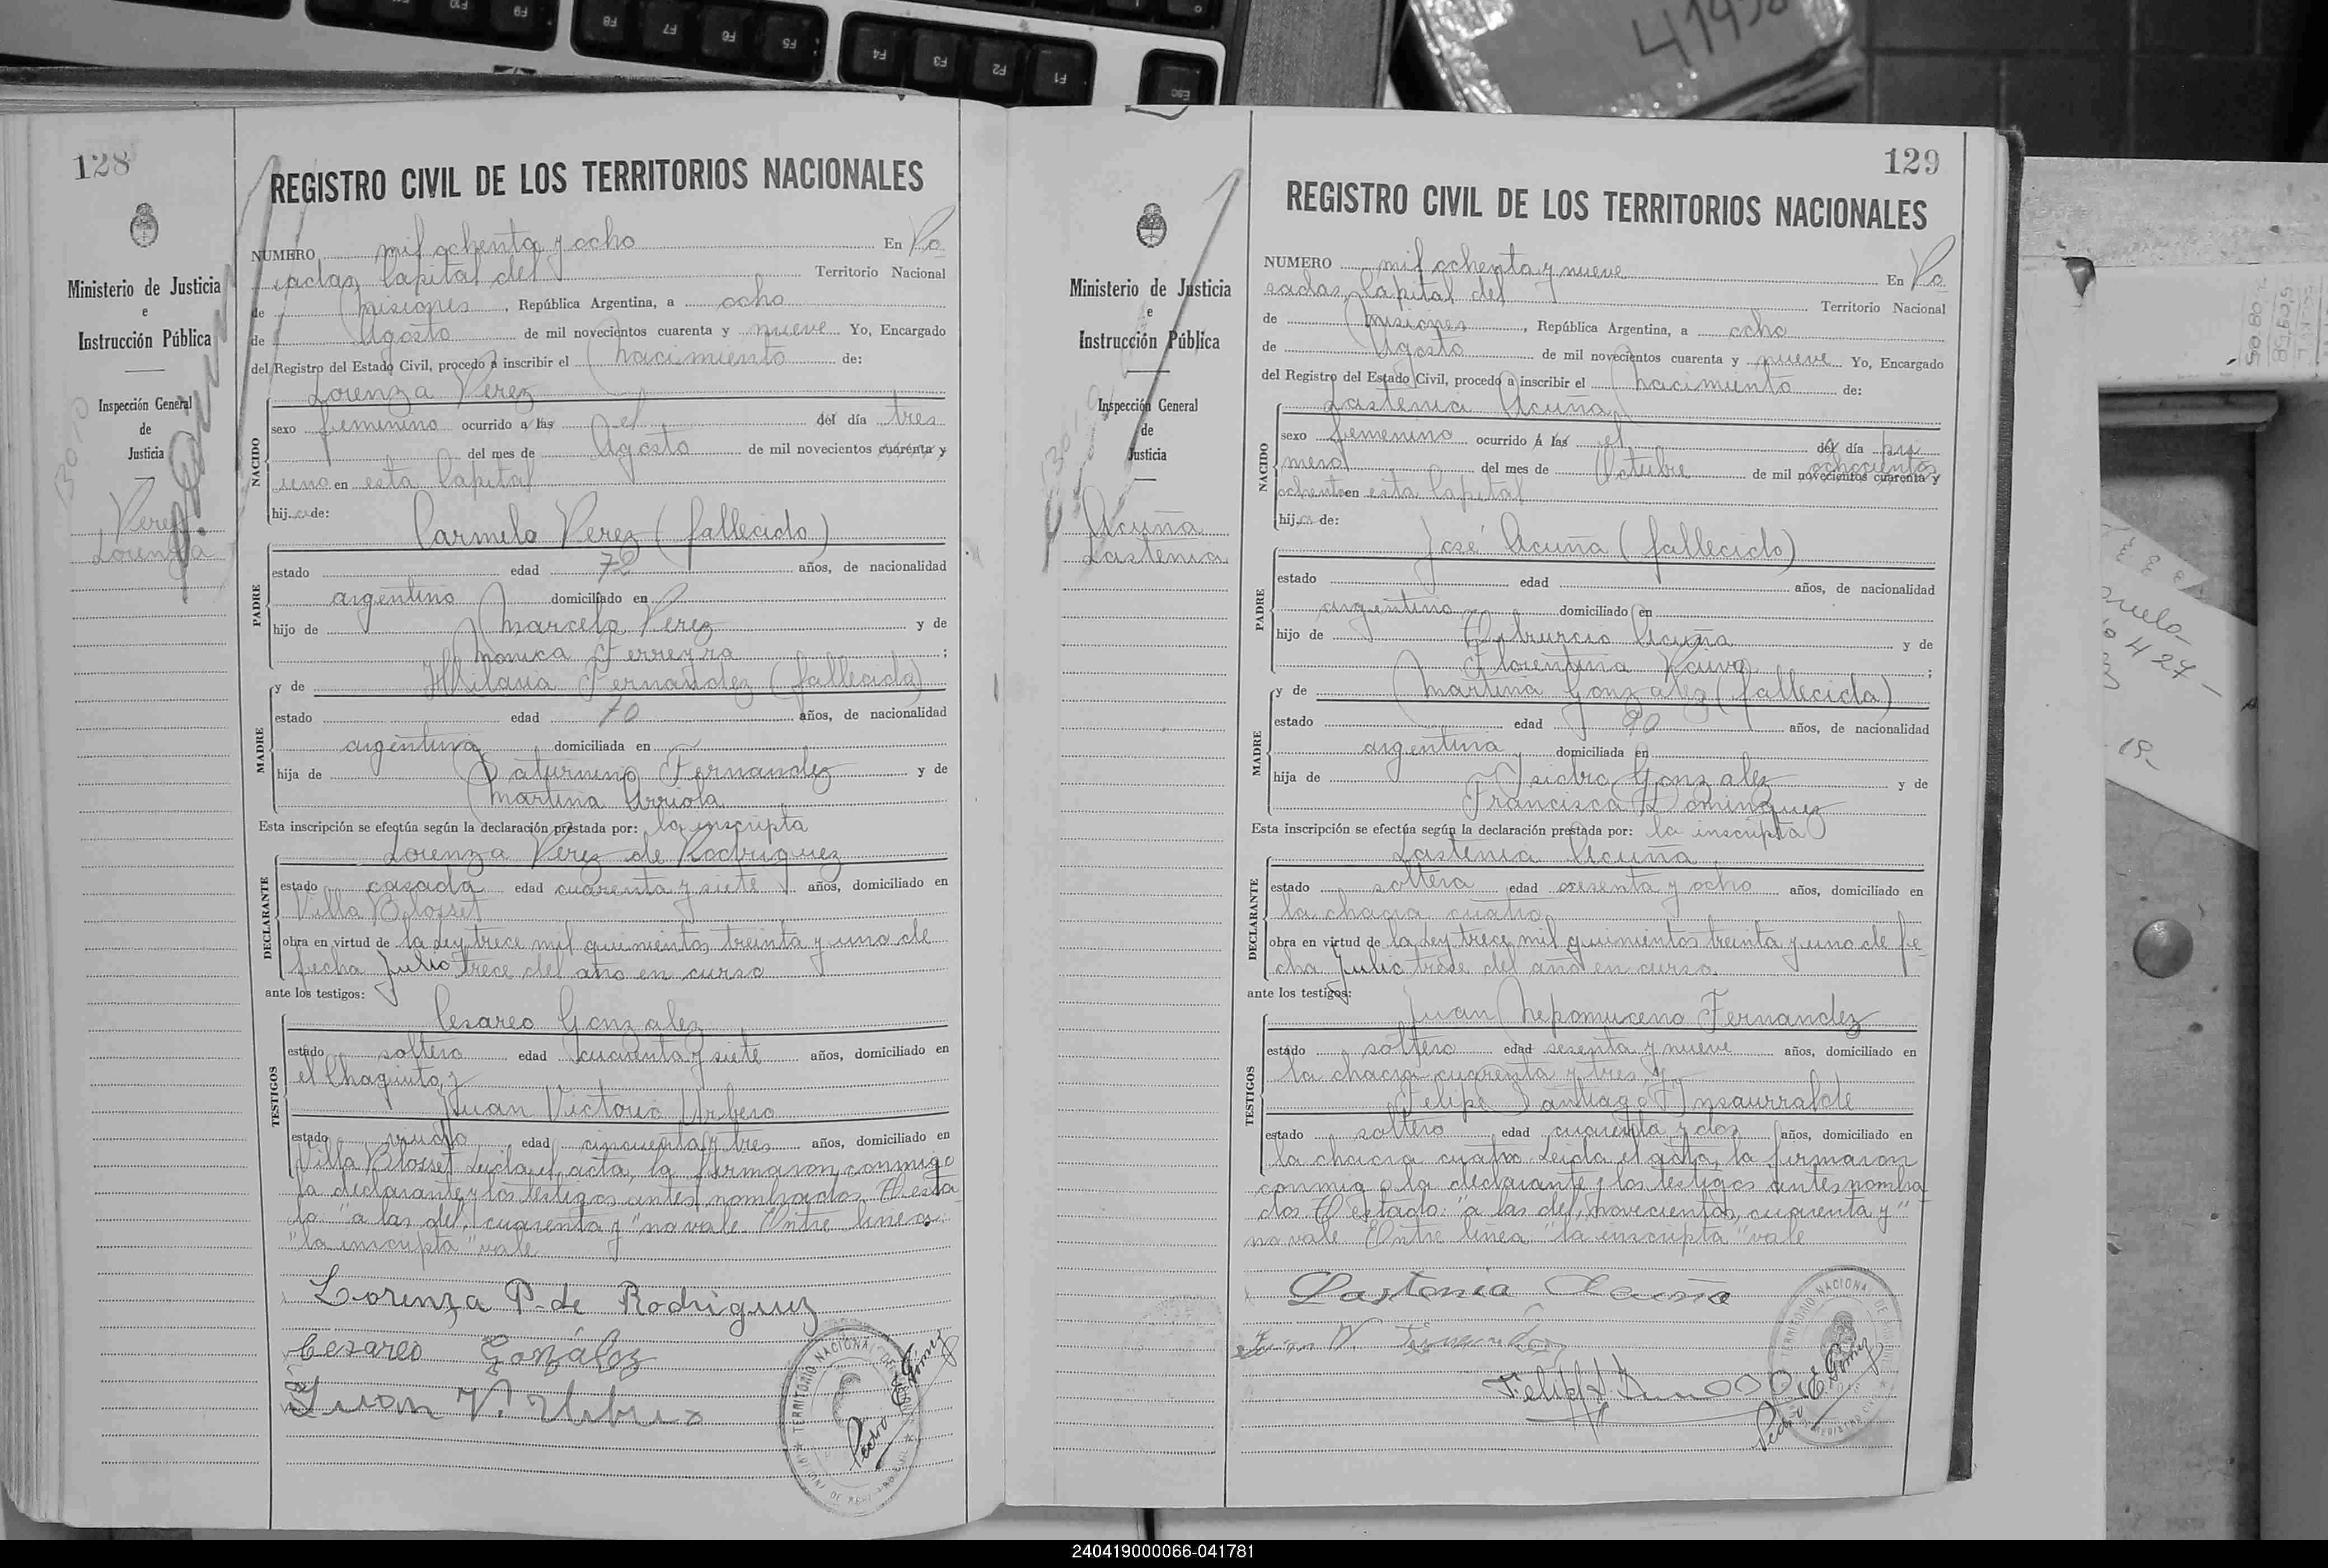 F10 F9 F8 F7 F6 F5 F4 F3 F2 F1 Esc
128
REGISTRO CIVIL DE LOS TERRITORIOS NACIONALES
Ministerio de Justicia
e
Instrucción Pública
Inspección General
de
Justicia
Perez
Lorenza
NUMERO mil ochenta y ocho En Po
sadas, Capital del Territorio Nacional
de Misiones, República Argentina, a ocho
de Agosto de mil novecientos cuarenta y nueve Yo, Encargado
del Registro del Estado Civil, procedo a inscribir el nacimiento de:
Lorenza Perez
NACIDO
sexo femenino ocurrido a las el del día tres
del mes de Agosto de mil novecientos cuarenta y
uno en esta Capital
hija de:
Carmelo Perez (fallecido)
PADRE
estado edad 72 años, de nacionalidad
argentino domiciliado en
hijo de Marcelo Perez y de
Monica Ferreyra ;
y de Hilaria Fernandez (fallecida)
MADRE
estado edad 70 años, de nacionalidad
argentina domiciliada en
hija de Saturnino Fernandez y de
Martina Arriola
Esta inscripción se efectúa según la declaración prestada por: la inscripta
Lorenza Perez de Rodriguez
DECLARANTE
estado casada edad cuarenta y siete años, domiciliado en
Villa Blosset
obra en virtud de la Ley trece mil quinientos treinta y uno de
fecha Julio trece del año en curso
ante los testigos:
Cesareo Gonzalez
TESTIGOS
estado soltero edad cuarenta y siete años, domiciliado en
el Chaquito, y
Juan Victorio Urbero
estado viudo edad cincuenta y tres años, domiciliado en
Villa Blosset Leida el acta, la firmaron conmigo
la declarante y los testigos antes nombrados. Testa
do: "a las del, cuarenta y" no vale. Entre linea:
"la inscripta" vale
Lorenza P. de Rodriguez
Cesareo González
Juan V.
TERRITORIO NACIONAL DE
Pedro E Gómez
129
REGISTRO CIVIL DE LOS TERRITORIOS NACIONALES
Ministerio de Justicia
e
Instrucción Pública
Inspección General
de
Justicia
Acuña
Lastenia
NUMERO mil ochenta y nueve En Po
sadas, Capital del Territorio Nacional
de Misiones, República Argentina, a ocho
de Agosto de mil novecientos cuarenta y nueve Yo, Encargado
del Registro del Estado Civil, procedo a inscribir el nacimiento de:
Lastenia Acuña
NACIDO
sexo femenino ocurrido a las el del día pri
mero del mes de Octubre de mil novecientos cuarenta y ochocientos
ochenta en esta Capital
hija de:
José Acuña (fallecido)
PADRE
estado edad años, de nacionalidad
argentino domiciliado en
hijo de Tiburcio Acuña y de
Florentina ;
y de Martina Gonzalez (fallecida)
MADRE
estado edad 90 años, de nacionalidad
argentina domiciliada en
hija de Isidro Gonzalez y de
Francisca Dominguez
Esta inscripción se efectúa según la declaración prestada por: la inscripta
Lastenia Acuña
DECLARANTE
estado soltera edad sesenta y ocho años, domiciliado en
la chacra cuatro
obra en virtud de la Ley trece mil quinientos treinta y uno de fe
cha Julio trece del año en curso
ante los testigos:
Juan Nepomuceno Fernandez
TESTIGOS
estado soltero edad sesenta y nueve años, domiciliado en
la chacra cuarenta y tres, y
Felipe Santiago Insaurralde
estado soltero edad cuarenta y dos años, domiciliado en
la chacra cuatro Leida el acta, la firmaron
conmigo la declarante y los testigos antes nombra
dos. Testado: "a las del, novecientos, cuarenta y"
no vale. Entre linea: "la inscripta" vale
Lastenia Acuña
Juan N. Fernandez
TERRITORIO NACIONAL DE MISIONES
Pedro E Gomez
240419000066-041781